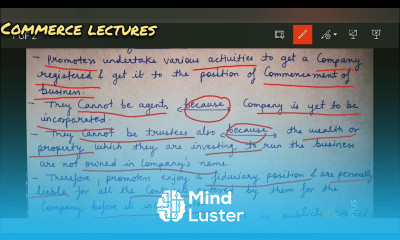 COMMERCE LECTURES
- promoters undertake various activities to get a Company
registered & get it to the position of Commencement of
business.
- They Cannot be agents because Company is yet to be
incorporated.
- They Cannot be trustees also because the wealth or
property which they are investing to run the business
are not owned in Company's name.
- Therefore, promoters enjoy a fiduciary position & are personally
liable for all the by them for the
Company before
Mind
Luster